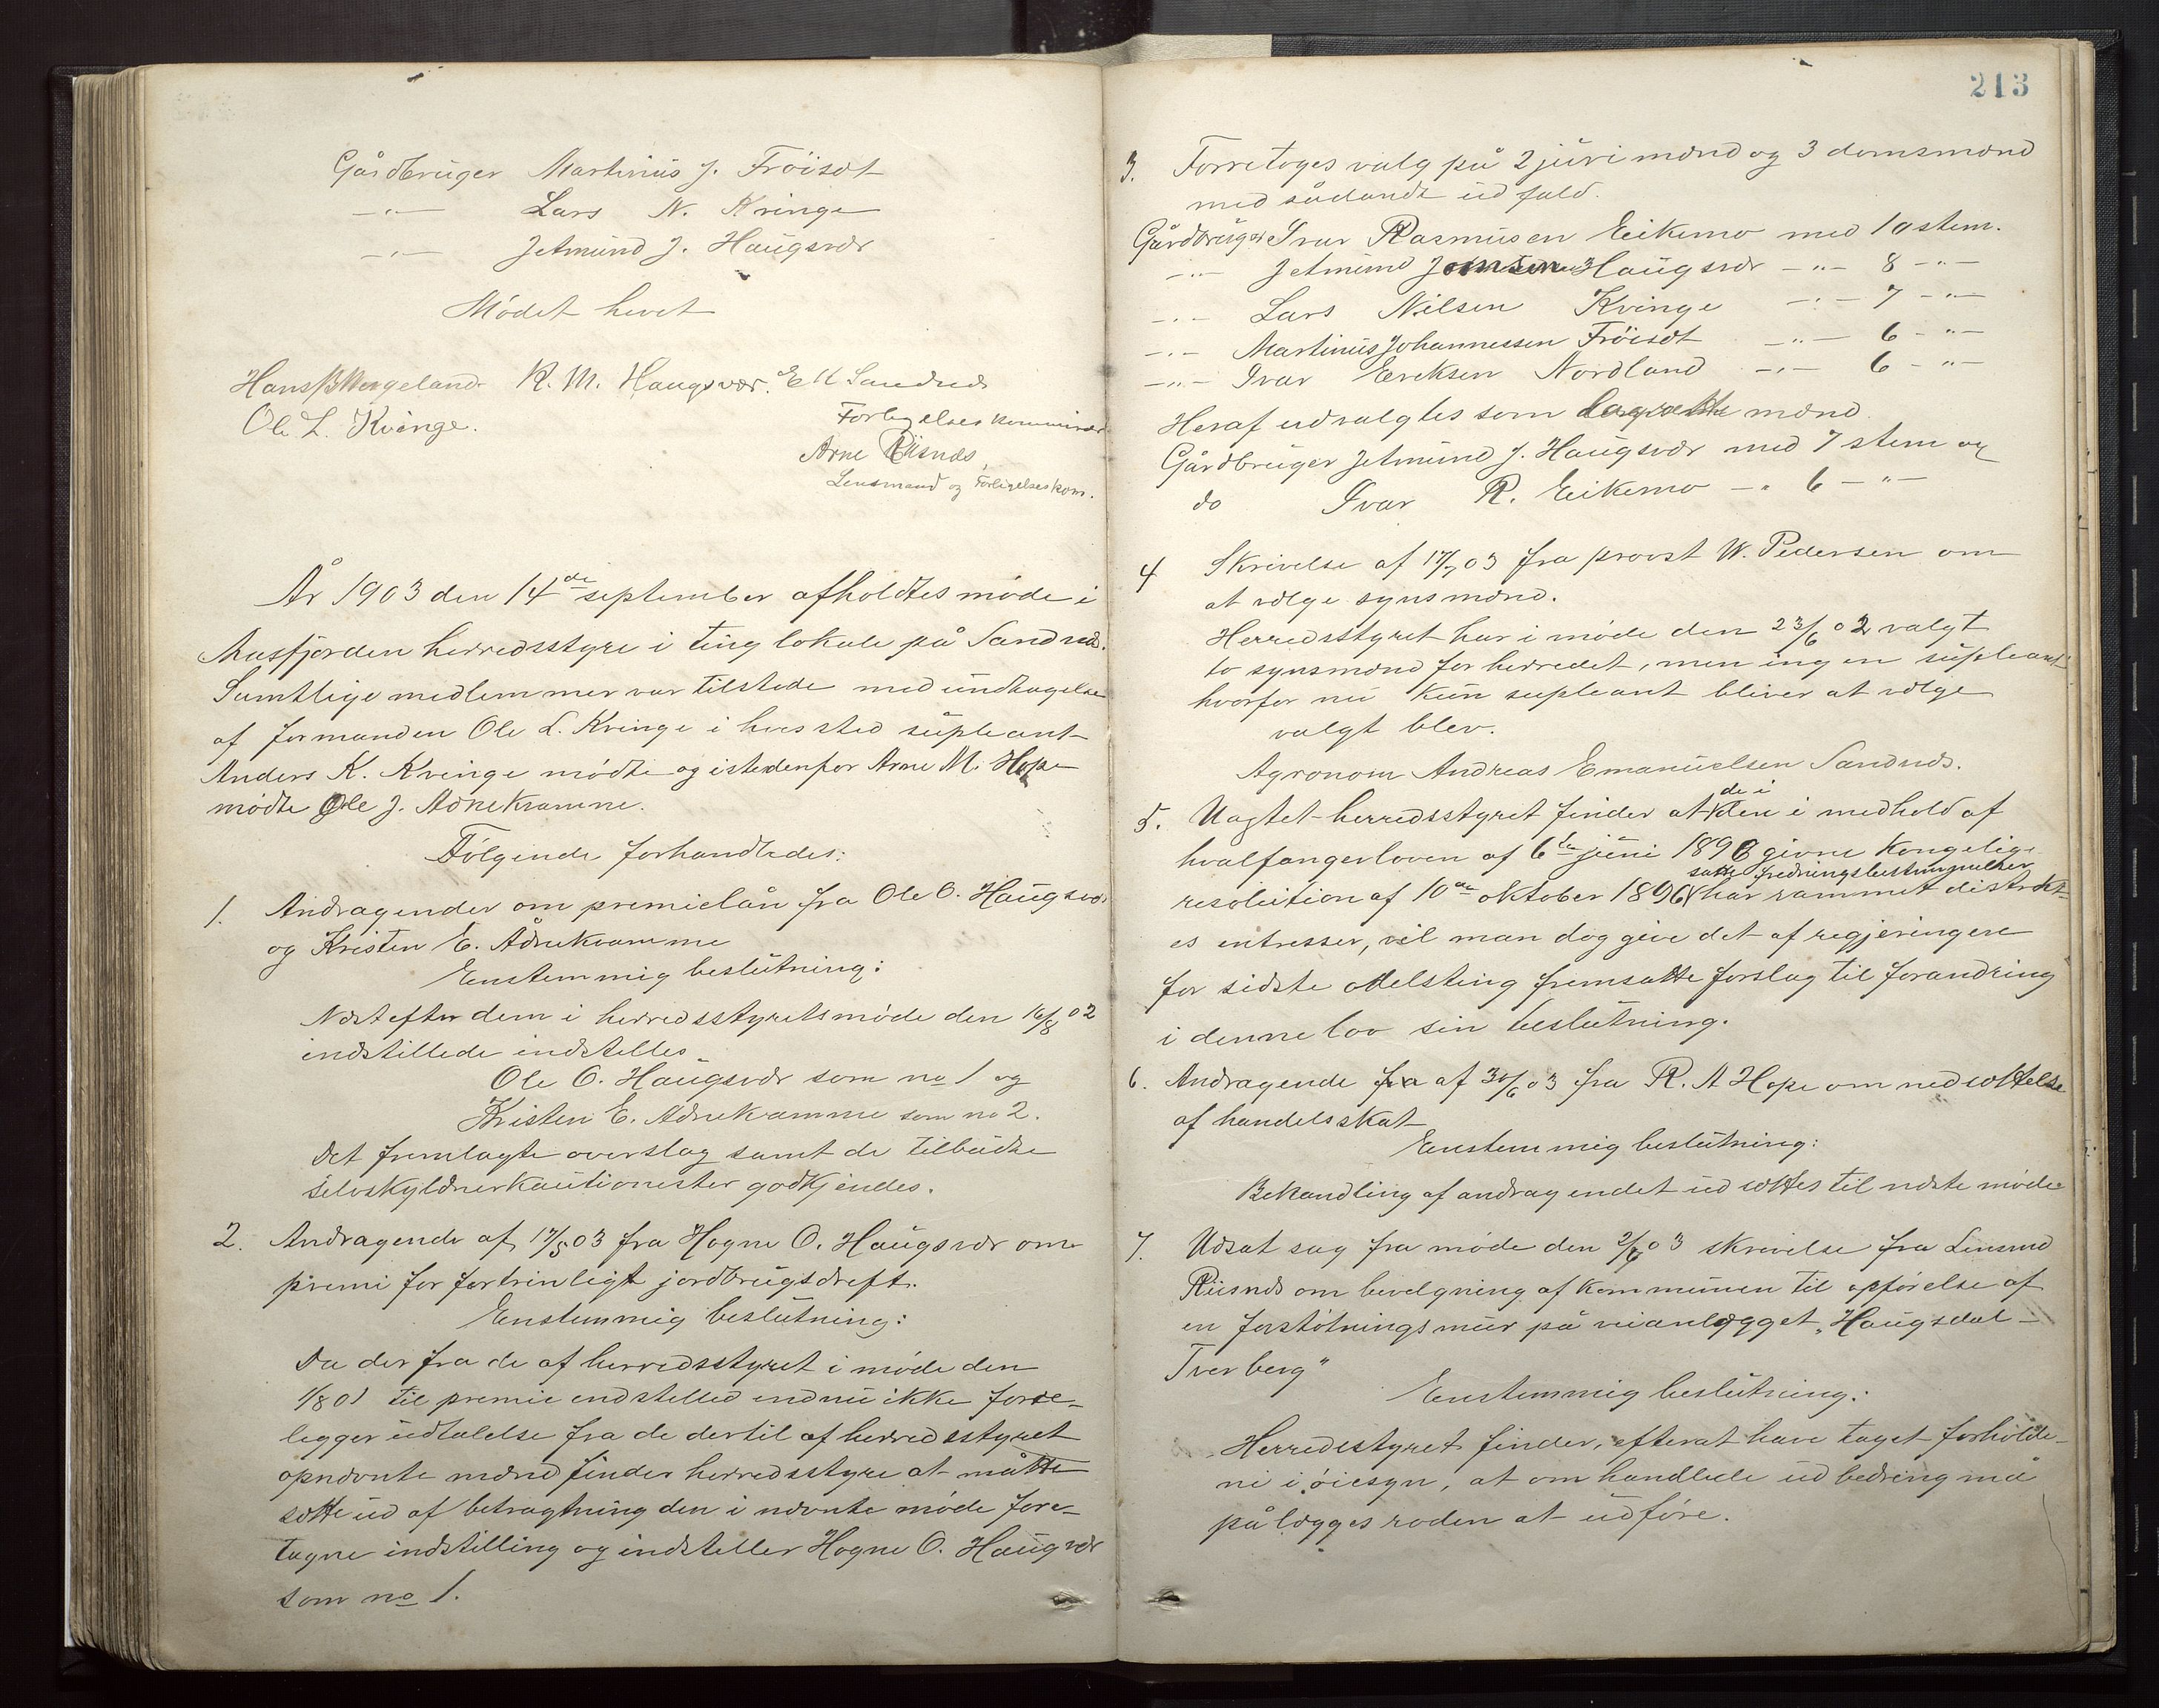 Gårdbruger Martinius J. Fröiset
—"— Lars N. Kvinge
—"— Jetmund J. Haugsvær
Mødet hevet
Hans B Wergeland R. M. Haugsvær. E K Sandnes
Ole L. Kvinge. Forligelseskommisær
Arne Risnes,
Lensmand og Forligelseskom.
År 1903 den 14de september afholdtes møde i
Masfjorden herredsstyre i tinglokale på Sandnes.
Samtlige medlemmer var tilstede med undtagelse
af formanden Ole L. Kvinge i hvis sted supleant
Anders K. Kvinge mødte og istedenfor Arne M. Hope
mødte Ole J. Adnekvamme.
Følgende forhandledes:
1. Andragender om premielån fra Ole O. Haugsvær
og Kristen E. Ådnekvamme
Enstemmig beslutning:
Næst efter dem i herredsstyretsmøde den 16/8 02
indstillede indstilles
Ole O. Haugsvær som no 1 og
Kristen E. Adnekvamme som no 2.
Det fremlagte overslag samt de tilbudte
selvskyldnerkautionister godkjendes.
2. Andragende af 17/5 03 fra Hogne O. Haugsvær om
premi for fortrinligt jordbrugsdrift.
Enstemmig beslutning:
Da der fra de af herredsstyret i møde den
1/8 01 til premie endstilled endnu ikke fore-
legger udtalelse fra de dertil af herredsstyret
opnævnte mænd finder herredsstyre at måtte
sætte ud af betragtning den i nævnte møde fore-
tagne indstilling og indstiller Hogne O. Haugsvær
som no 1.
213
3. Forretoges valg på 2 jurimænd og 3 domsmænd
med sådandt udfald.
Gårdbruger Ivar Rasmusen Eikemo med 10 stem.
—"— Jetmund Jonsen Haugsvær —"— 8 —"—
—"— Lars Nilsen Kvinge —"— 7 —"—
—"— Martinus Johannessen Fröiset —"— 6 —"—
—"— Ivar Eriksen Nordland —"— 6 —"—
Heraf udvalgtes som lagrette mænd
Gårdbruger Jetmund J. Haugsvær med 7 stem og
do Ivar R. Eikemo —"— 6 —"—
4 Skrivelse af 17/7 03 fra provst W. Pedersen om
at vælge synsmænd.
Herredsstyret har i møde den 23/6 02 valgt
to synsmænd for herredet, men ingen supleant
hvorfor nu kun supleant bliver at vælge
valgt blev.
Agronom Andreas Emanuelsen Sandnes.
5. Uagtet herredsstyret finder at de i den i medhold af
hvalfangerloven af 6te juni 1896 givne kongelige
resolution af 10de oktober 1896 satte fredningsbestemmelser har rammet distrikt-
es intresser, vil man dog give det af regjeringen
for sidste odelsting fremsatte forslag til forandring
i denne lov sin beslutning.
6. Andragende fra af 30/6 03 fra R. A Hope om nedsættelse
af handelsskat
Enstemmig beslutning:
Behandling af andragendet udsættes til næste møde
7. Udsat sag fra møde den 2/7 03 skrivelse fra Lensmd
Risnes om bevelgning af kommunen til opførelse af
en forstøtningsmur på veianlægget „Haugsdal-
Tverberg"
Enstemmig beslutning:
Herredsstyret finder, efterat have taget forholde-
ne i øiesyn, at omhandlede udbedring må
pålægges roden at udføre.